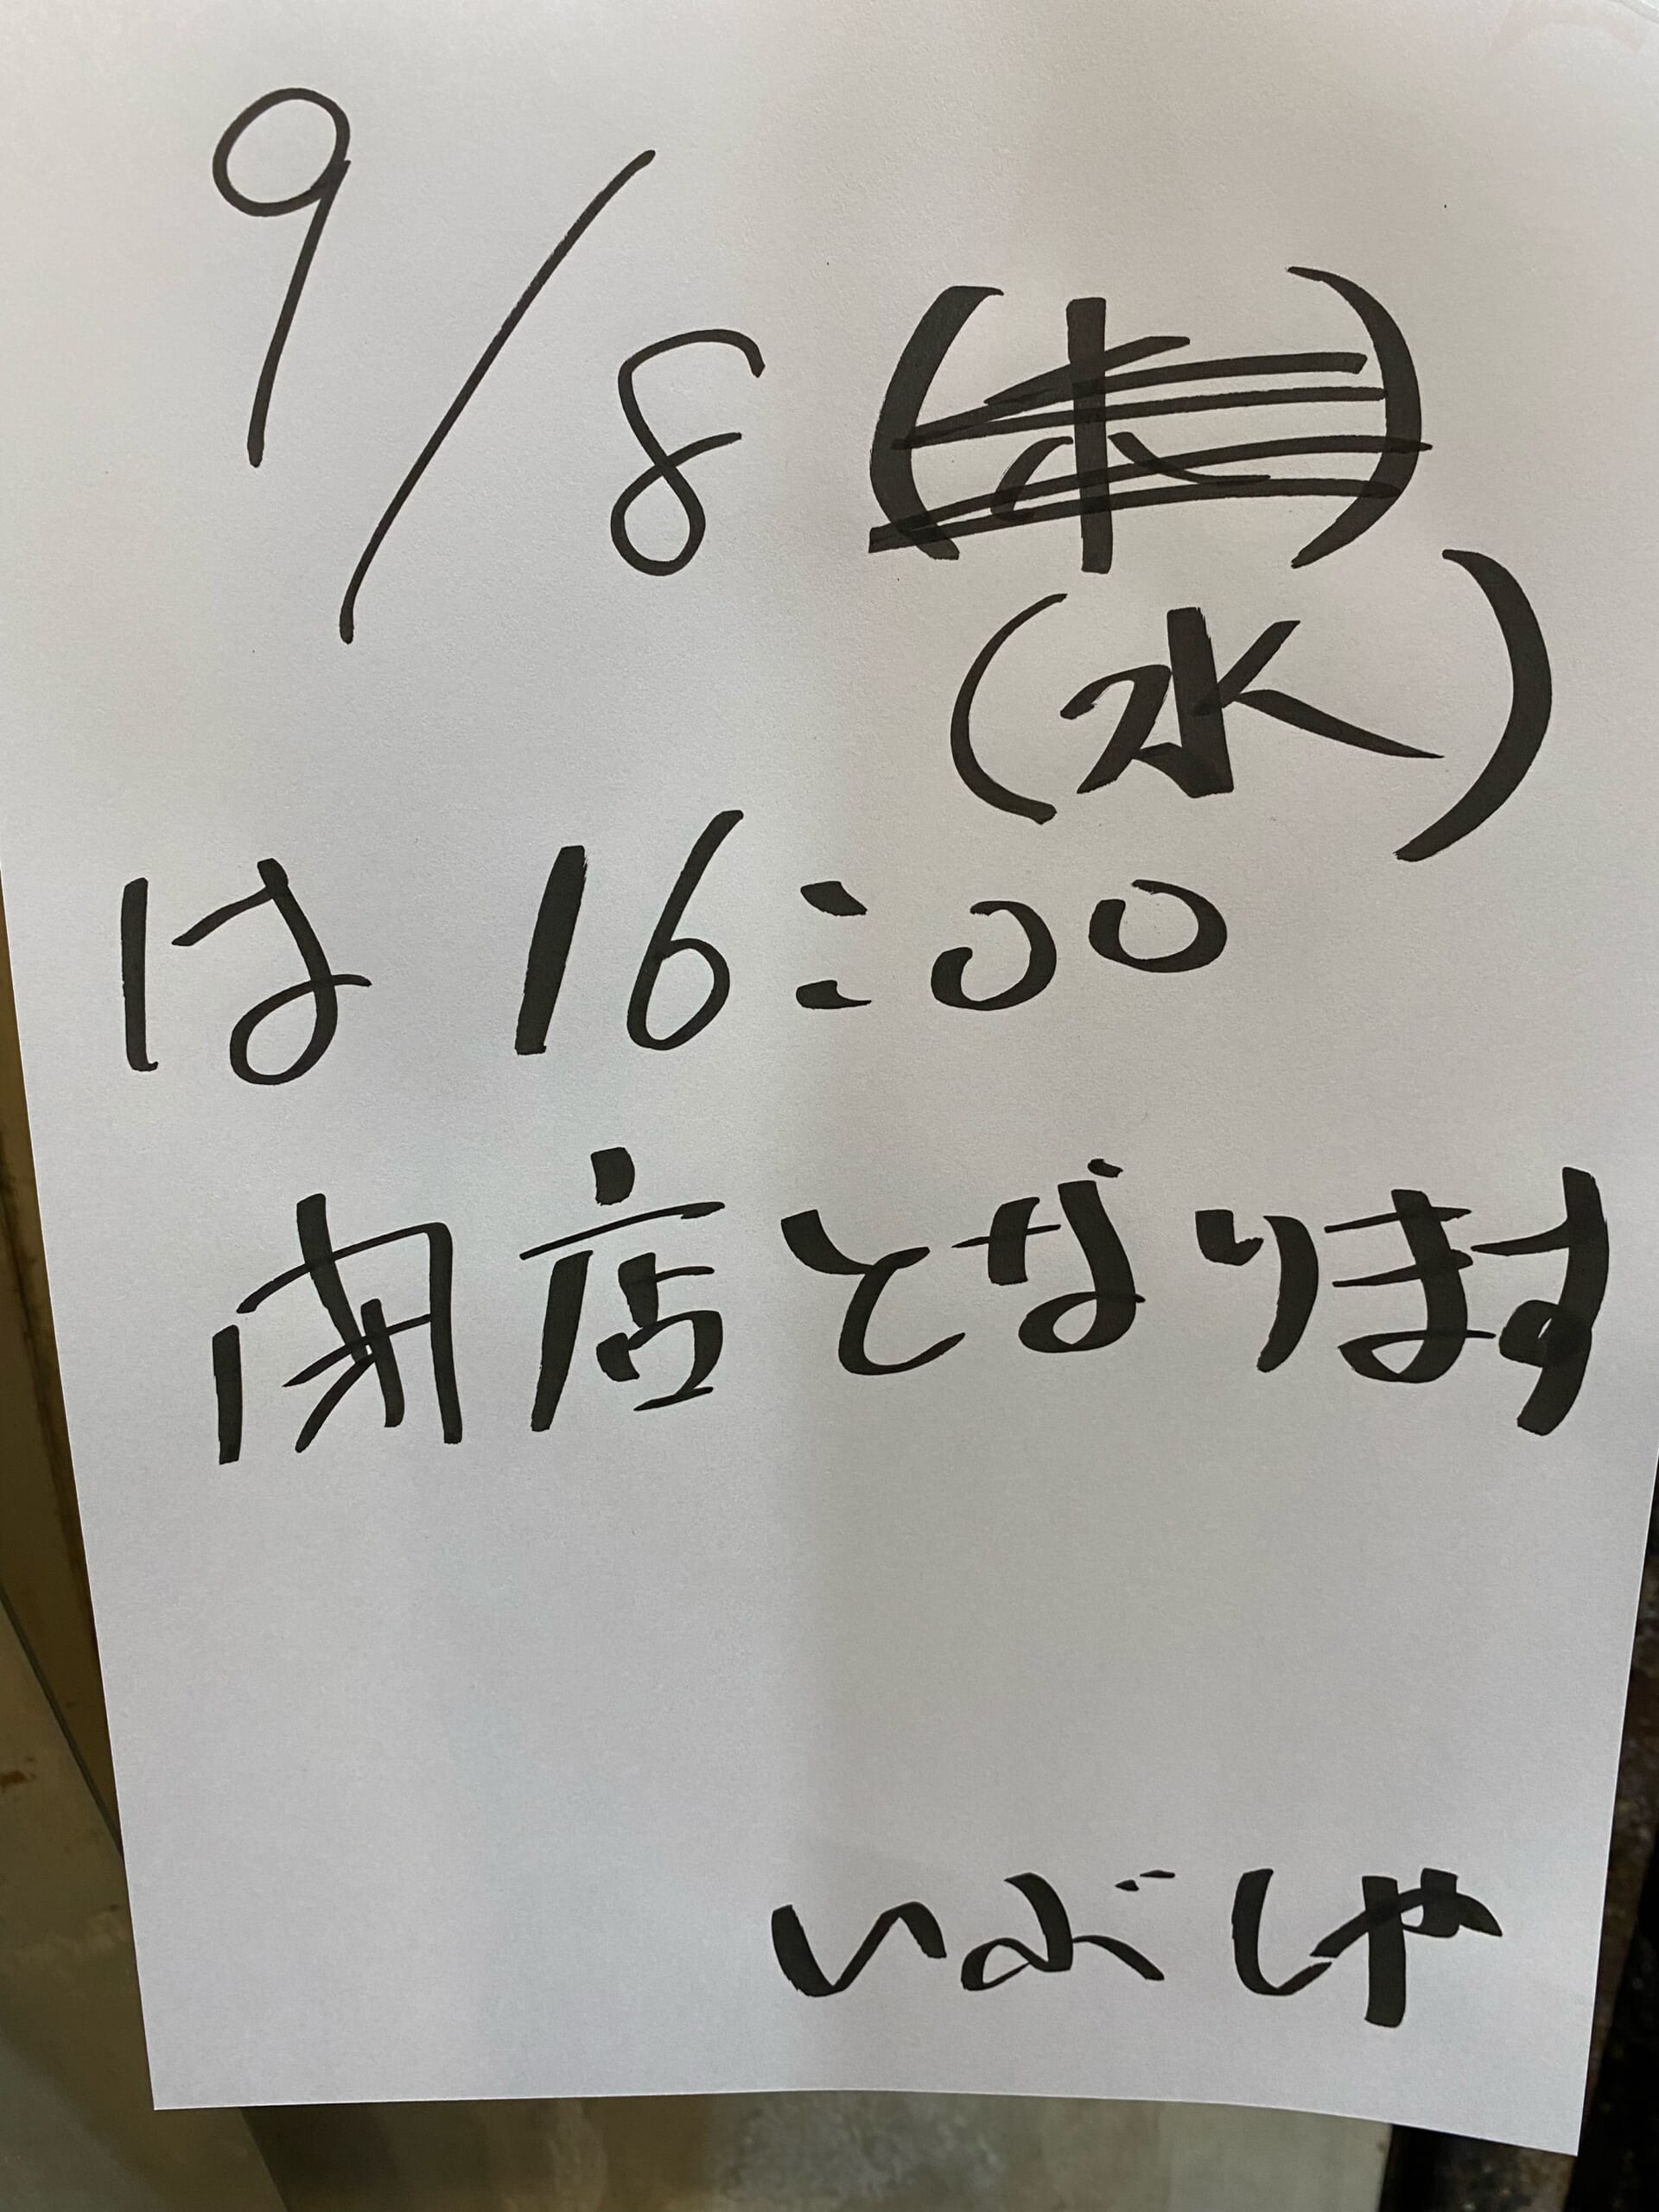 9/8(木)
(水)
は 16:00
閉店となります
いぶしや